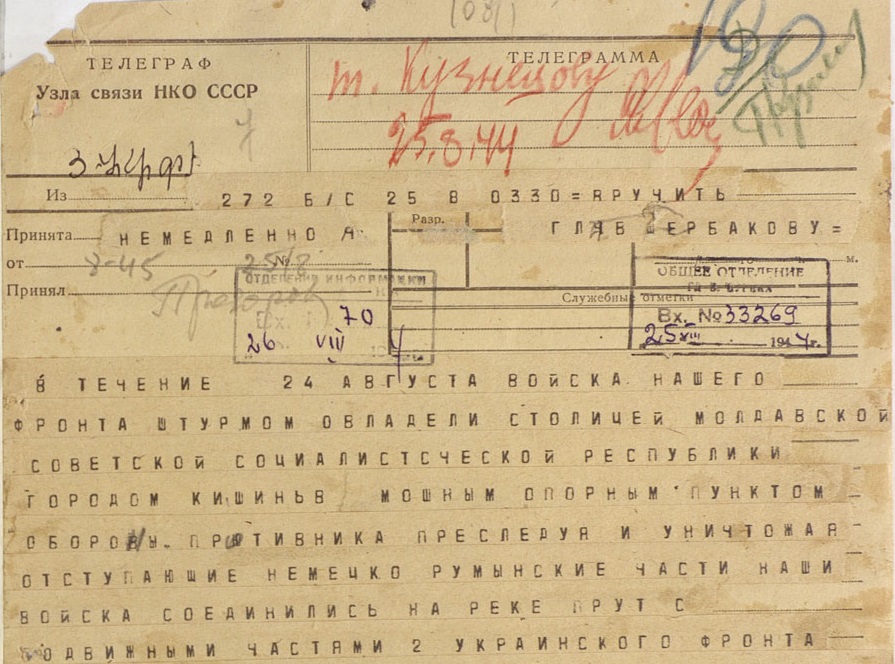 (081)
ТЕЛЕГРАФ
Узла связи НКО СССР
ТЕЛЕГРАММА
т. Кузнецову
25.8.44
7
Из 272 Б/С 25 8 0330=ВРУЧИТЬ
Принята НЕМЕДЛЕННО Я
Разр.
ГЛАВ ЩЕРБАКОВУ=
от 8-45 № 25/8
м.
Принял
Служебные отметки
ОТДЕЛЕНИЕ ИНФОРМАЦИИ
Вх. 70
26 VIII 194
ОБЩЕЕ ОТДЕЛЕНИЕ
Вх. №33269
25 VIII 1944г.
В ТЕЧЕНИЕ 24 АВГУСТА ВОЙСКА НАШЕГО
ФРОНТА ШТУРМОМ ОВЛАДЕЛИ СТОЛИЦЕЙ МОЛДАВСКОЙ
СОВЕТСКОЙ СОЦИАЛИСТСЧЕСКОЙ РЕСПУБЛИКИ
ГОРОДОМ КИШИНЬВ МОШНЫМ ОПОРНЫМ ПУНКТОМ
ОБОРОНЫ ПРОТИВНИКА ПРЕСЛЕДУЯ И УНИЧТОЖАЯ
ОТСТУПАЮШИЕ НЕМЕЦКО РУМЫНСКИЕ ЧАСТИ НАШИ
ВОЙСКА СОЕДИНИЛИСЬ НА РЕКЕ ПРУТ С
ПОДВИЖНЫМИ ЧАСТЯМИ 2 УКРАИНСКОГО ФРОНТА